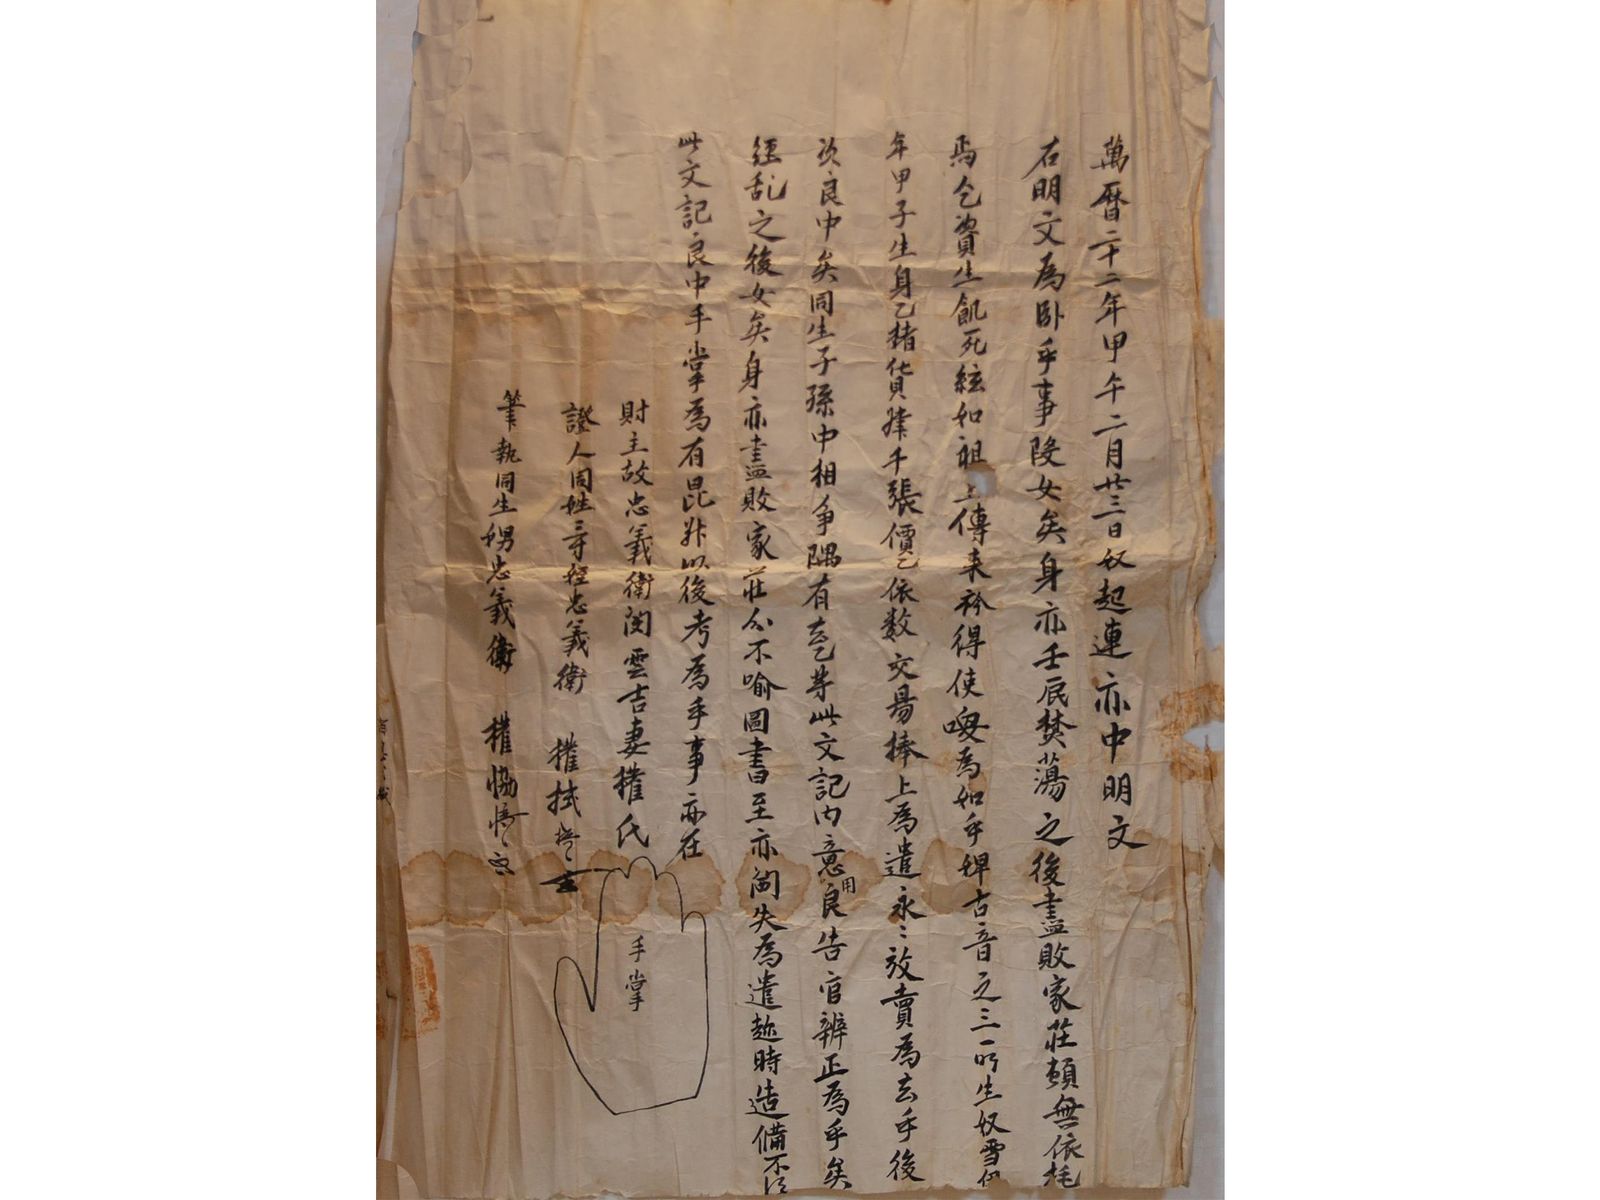 萬曆二十二年甲午二月廿三日奴起連亦中明文
右明文爲臥乎事段女矣身亦壬辰焚蕩之後盡敗家莊頓無依托
爲乞資生飢死絃如祖上傳來衿得使喚爲如乎婢古音之三所生奴雪
年甲子生身乙猪貨肆千張價乙依數交易捧上爲遣永〻放賣爲去乎後
次良中矣同生子孫中相爭隅有去乙等此文記內意用良告官辨正爲乎矣
經亂之後女矣身亦盡敗家莊分不喩圖書至亦閪失爲遣趂時造備不得
此文記良中手掌爲有昆幷以後考爲乎事亦在
財主故忠義衛閔雲吉妻權氏
手掌
證人同姓三寸姪忠義衛 權拭
筆執同生娚忠義衛 權恊